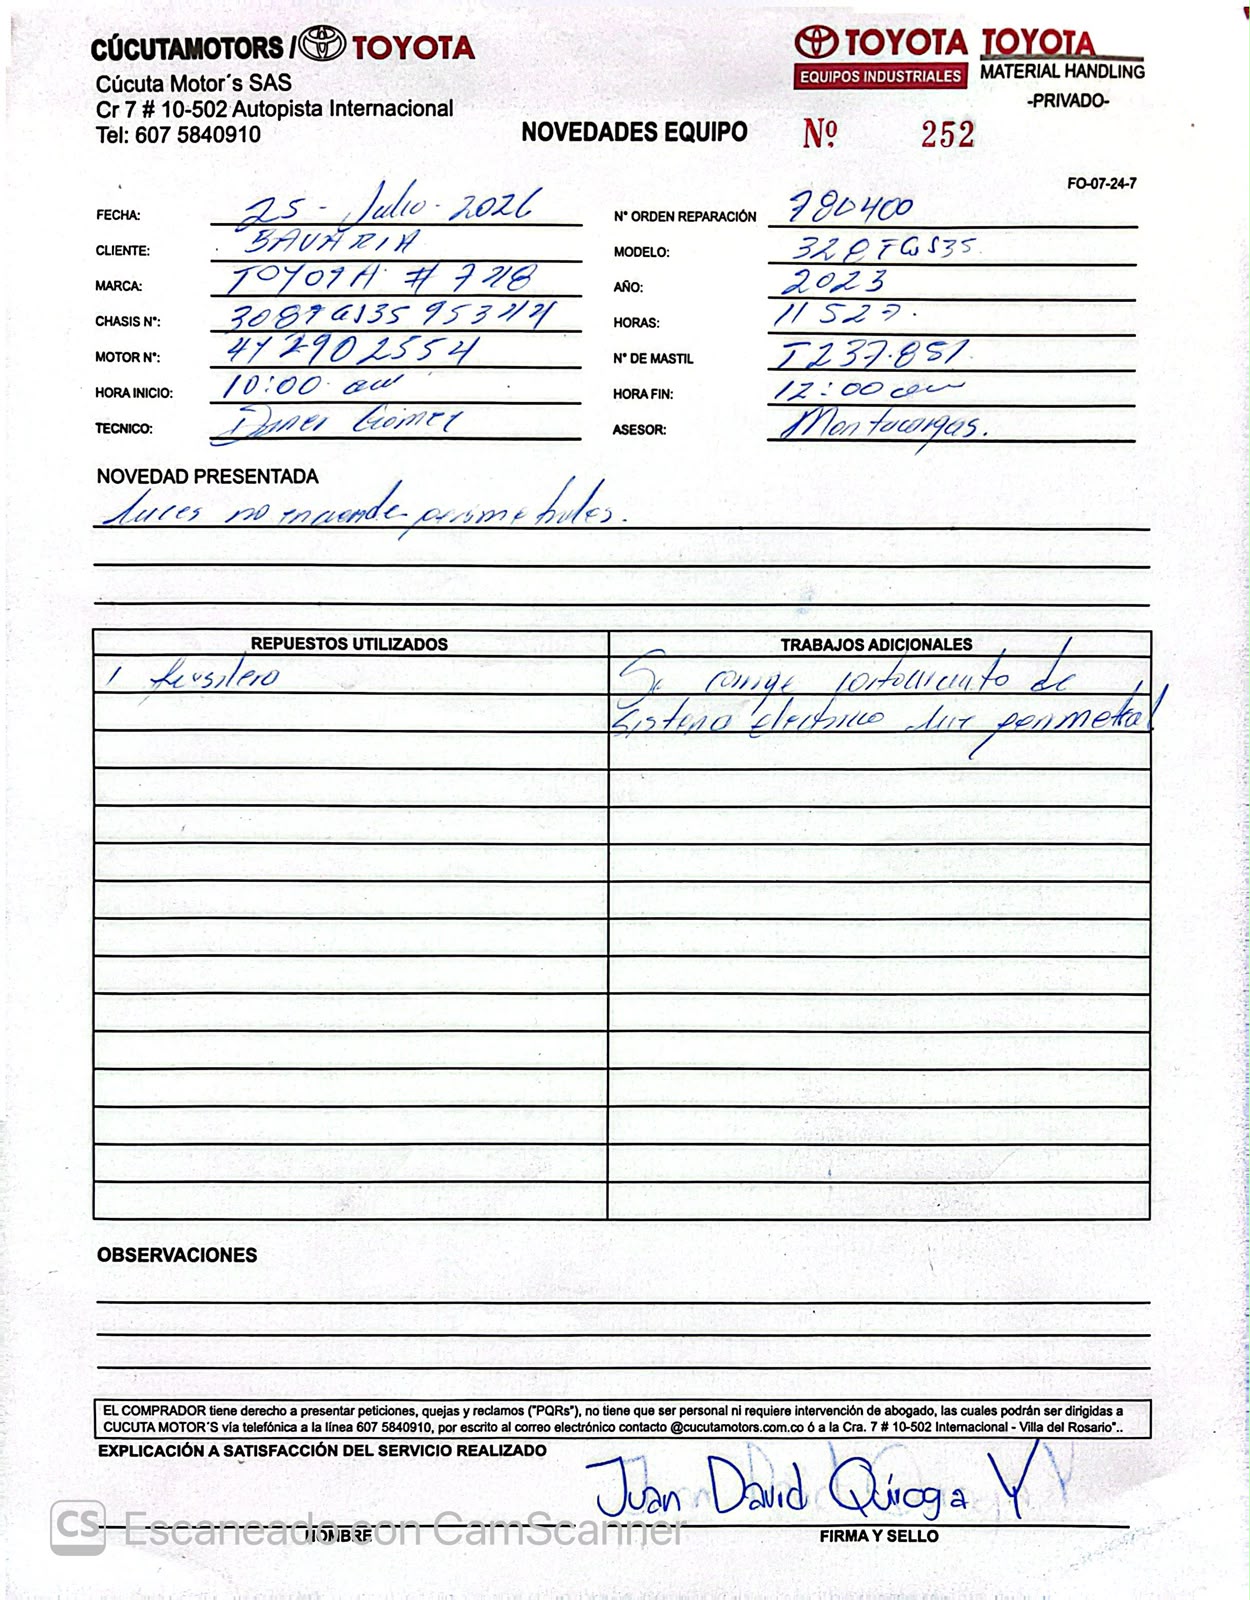 CÚCUTAMOTORS / TOYOTA
TOYOTA TOYOTA
EQUIPOS INDUSTRIALES MATERIAL HANDLING
-PRIVADO-
Cúcuta Motor´s SAS
Cr 7 # 10-502 Autopista Internacional
Tel: 607 5840910
NOVEDADES EQUIPO Nº 252
FO-07-24-7
FECHA: 25 - Julio - 2026 N° ORDEN REPARACIÓN 780400
CLIENTE: BAVARIA MODELO:
MARCA: TOYOTA # 728 AÑO: 2023
CHASIS N°: HORAS: 11527.
MOTOR N°: N° DE MASTIL
HORA INICIO: 10:00 am HORA FIN: 12:00 am
TECNICO: Gómez ASESOR: Montacargas.
NOVEDAD PRESENTADA
luces no enciende perimetrales.
REPUESTOS UTILIZADOS TRABAJOS ADICIONALES
1 fusilera Se corrige cortocircuito de
sistema electrico luz perimetral
OBSERVACIONES
EL COMPRADOR tiene derecho a presentar peticiones, quejas y reclamos ("PQRs"), no tiene que ser personal ni requiere intervención de abogado, las cuales podrán ser dirigidas a
CUCUTA MOTOR´S vía telefónica a la línea 607 5840910, por escrito al correo electrónico contacto @cucutamotors.com.co ó a la Cra. 7 # 10-502 Internacional - Villa del Rosario"..
EXPLICACIÓN A SATISFACCIÓN DEL SERVICIO REALIZADO
Juan David Quiroga Y
NOMBRE FIRMA Y SELLO
CS Escaneado con CamScanner